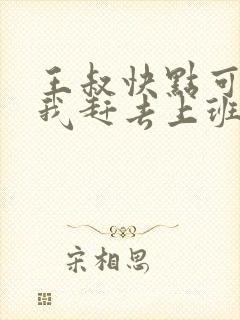 王叔快點可
我赶去上班
宋相思